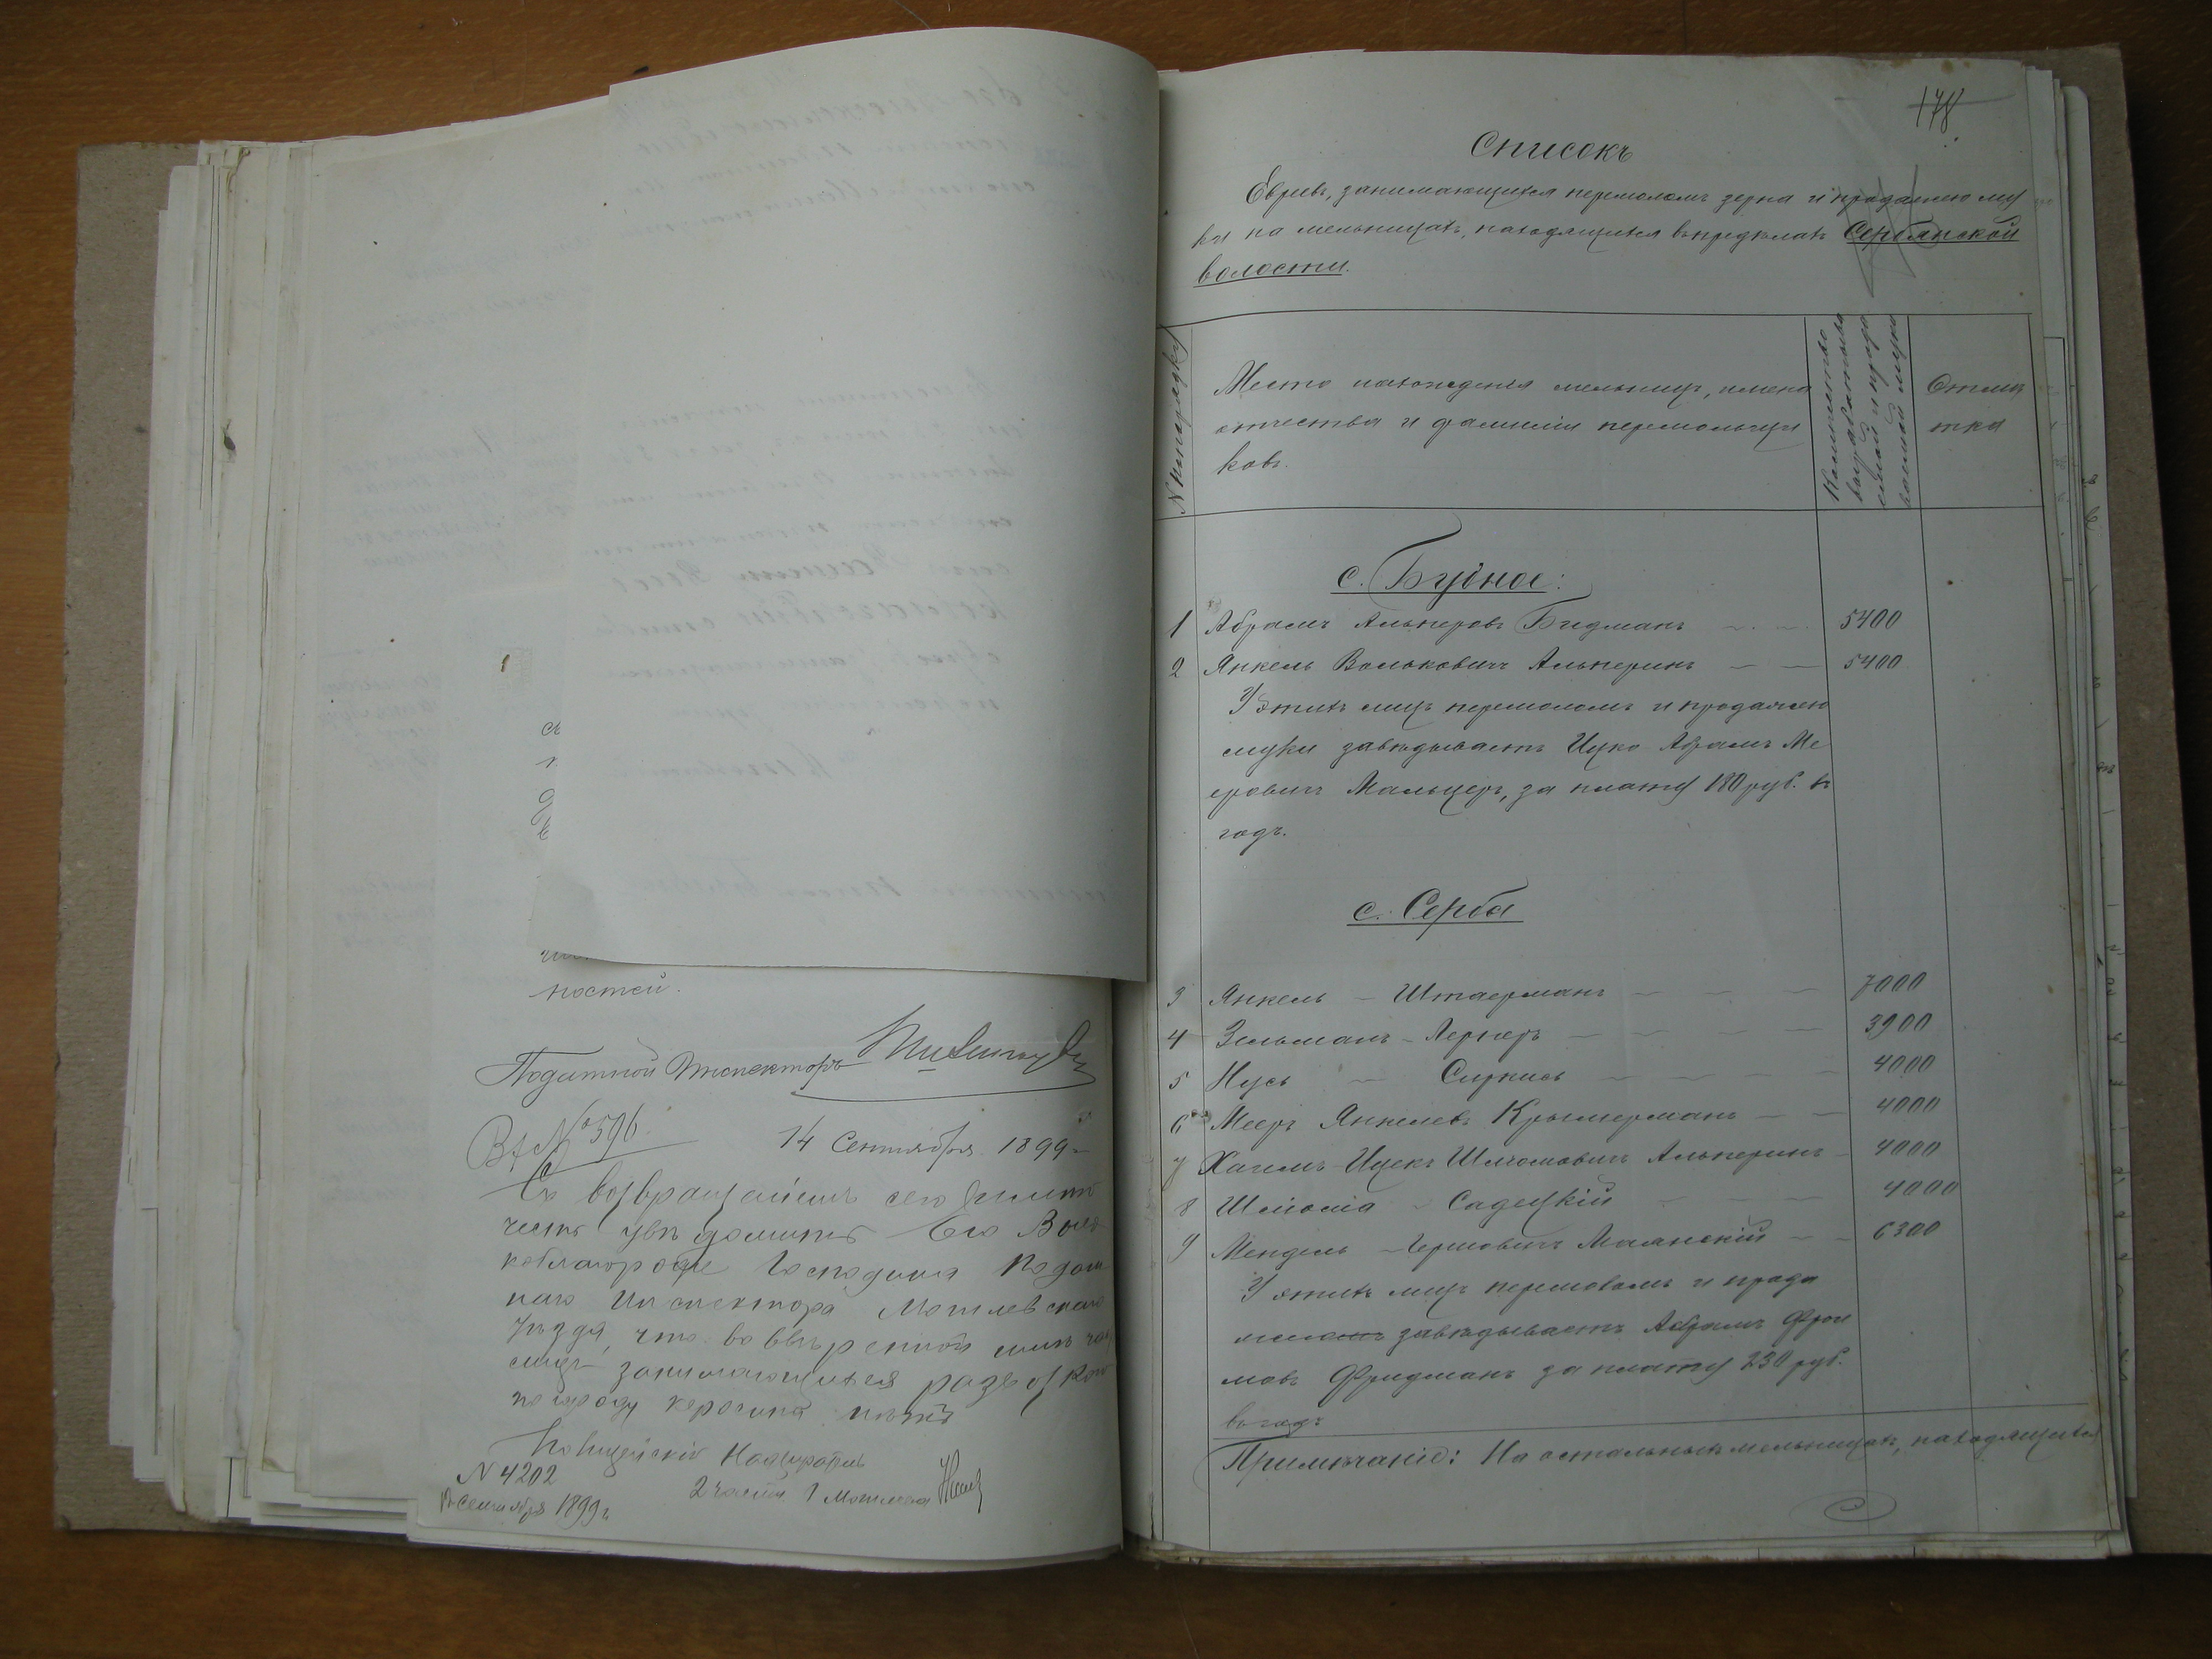 ностей.
Податной Инспекторъ
Вх № 596.
14 Сентября 1899 г.
Съ возвращеніемъ сего имѣю
честь увѣдомить Его Высо
коблагородіе Господина Подат
наго Инспектора Могилевскаго
Уѣзда, что во ввѣренной мнѣ части
лицъ занимающихся развозкою
по городу керосина нѣтъ
Полицейскій Надзиратель
2 части г Могилева
N 4202
сентября 1899 г.
178
Списокъ
Евреевъ, занимающихся перемоломъ зерна и продажею му
ки на мельницахъ, находящихся въ предѣлахъ Сербянской
волости.
N по порядку
Место нахожденія мельницъ, имена
отчества и фамиліи перемольщи
ковъ.
Количество
вырабатыва
емой и прода
ваемой муки
Отмѣ
тка
с. Будное:
1 Абрамъ Альперовъ Бидманъ 5400
2 Янкель Вольковичъ Альперинъ 5400
У этихъ лицъ перемоломъ и продажею
муки завѣдываетъ Ицко Абрамъ Ме
еровичъ Мальцеръ, за плату 180 руб. въ
годъ.
с. Серба
3 Янкель - Штаерманъ 7000
4 Зельманъ - Лернеръ 3900
5 Нусь - 4000
6 Мееръ Янкелевъ Крымерманъ 4000
7 Хаимъ-Ицекъ Шлиомовичъ Альперинъ 4000
8 Шліома - Садецкій 4000
9 Мендель - Гершовичъ Маянскій 6300
У этихъ лицъ перемоломъ и прода
жею завѣдываетъ Абрамъ Фрои
мовъ Фридманъ за плату 230 руб.
въ годъ
Примѣчаніе: На остальныхъ мельницахъ, находящихся